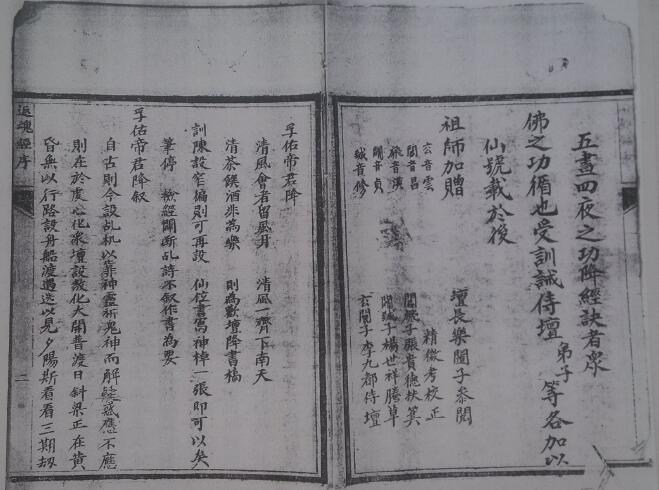 五晝四夜之功降經訣者眾
佛之功循也受訓誡侍壇弟子等各加以
仙號載於後
祖師加贈
壇長樂閣子參閱
玄音雲
精微考校正
闡音昌
張貴德扶箕
飛音漢
子楊世祥謄草
音貞
玄閣子李九都侍壇
誠音修
孚佑帝君降
清風會者留風月
清風一霽下南天
清茶饌酒非為樂
則為數壇降書稿
訓陳設窄偏則可再設
仙位書寫神棹一張即可以矣
筆停
檢經闡斷乩詩不叙作書為要
孚佑帝君降叙
自古則今設乩机以靠神靈祈鬼神而解疑惑應不應
則在於虔心化家壇設教化大開普渡日斜梁正在黃
昏無以行路設舟船渡過迷以見夕陽斯看看三期劫
返魂經序
二